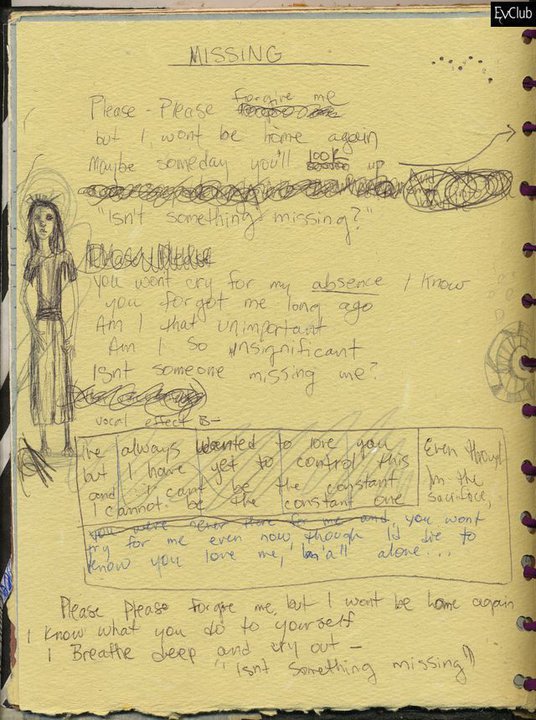 EvClub
MISSING
Please - Please forgive me
but I wont be home again
Maybe someday you'll look up
"Isn't something missing?"
You wont cry for my absence I know
you forgot me long ago
Am I that unimportant
Am I so insignificant
Isnt someone missing me?
vocal effect B-
I've always wanted to love you
but I have yet to control this
and I cant be the constant
I cannot be the constant one
Even though
Im the
sacrifice,
you were never there for me and, you wont
try for me even now, though Id die to
know you love me, Im all alone...
Please Please forgive me, but I wont be home again
I know what you do to yourself
I Breathe deep and cry out -
"Isnt something missing"